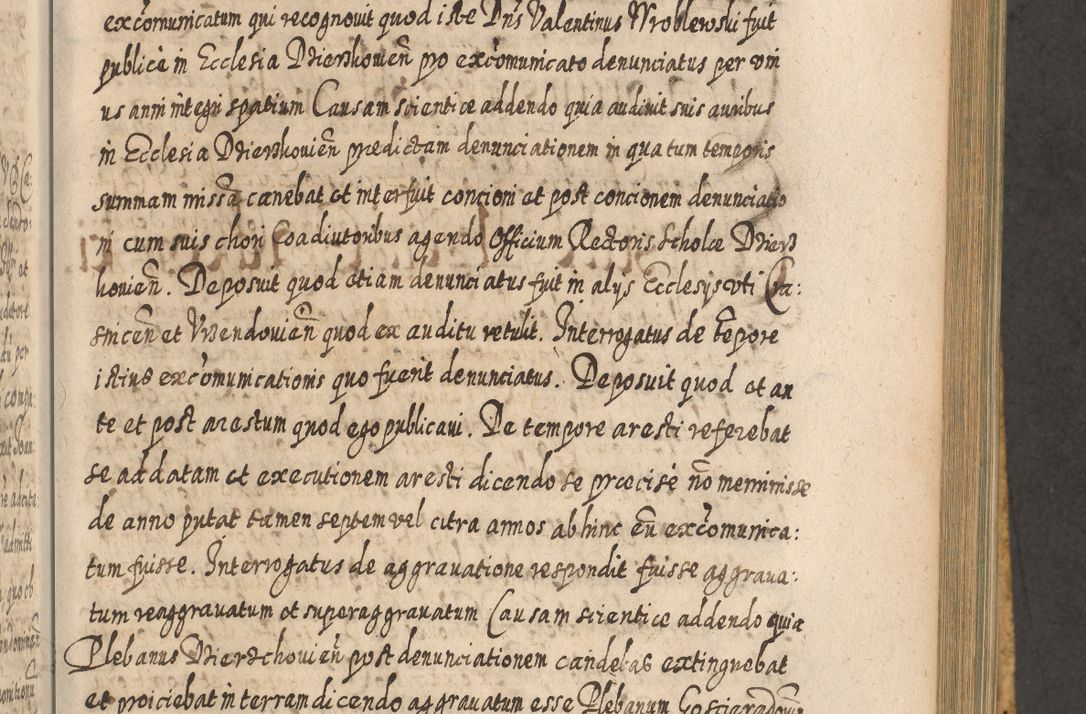 excõmunicatum qui recognovit quod iste Dn̄s Valentinus Wroblewski fuit
publicè in Ecclesia Dzierzkovień pro excõmunicato denunciatus per vni
us anni integri spatium Causam scientiæ addendo quia audivit suis auribus
in Ecclesia Dzierzkovień prædictam denunciationem in qua tum temporis
summam missã canebat et interfuit concioni et post concionem denunciatio
ni cum suis chori Coadiutoribus agendo officium Rectoris Scholæ Dzierz
kovień. Deposuit quod etiam denunciatus fuit in alys Ecclesys vti Cra:
sniceń et Vrzendovień quod ex auditu retulit. Interrogatus de tẽpore
istius excõmunicationis quo fuerit denunciatus. Deposuit quod et an
te et post arestum quod ego publicavi. De tempore aresti referebat
se ad datam et executionem aresti dicendo se præcisè nõ meminisse
de anno putat tamen septem vel citra annos ab hinc eũ excõmunica:
tum fuisse. Interrogatus de aggravatione respondit fuisse aggrava:
tum reaggravatum et superaggravatum Causam scientiæ addendo quia
Plebanus Dzierzchovień post denunciationem candelas extinguebat
et proiciebat in terram dicendo aggravatum esse Plebanum Gosciaradovień